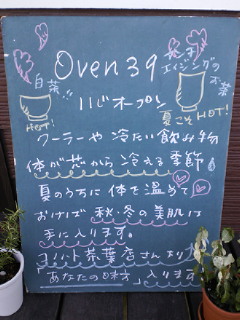 Oven39
11じオープン
白茶!!
HOT!
エイジングの
お茶
夏こそHOT!
クーラーや冷たい飲み物
体が芯から冷える季節。
夏のうちに体を温めて
おけば秋・冬の美肌は
手に入ります。
ヨリット茶葉店さんより
「あなたの味方」入ります